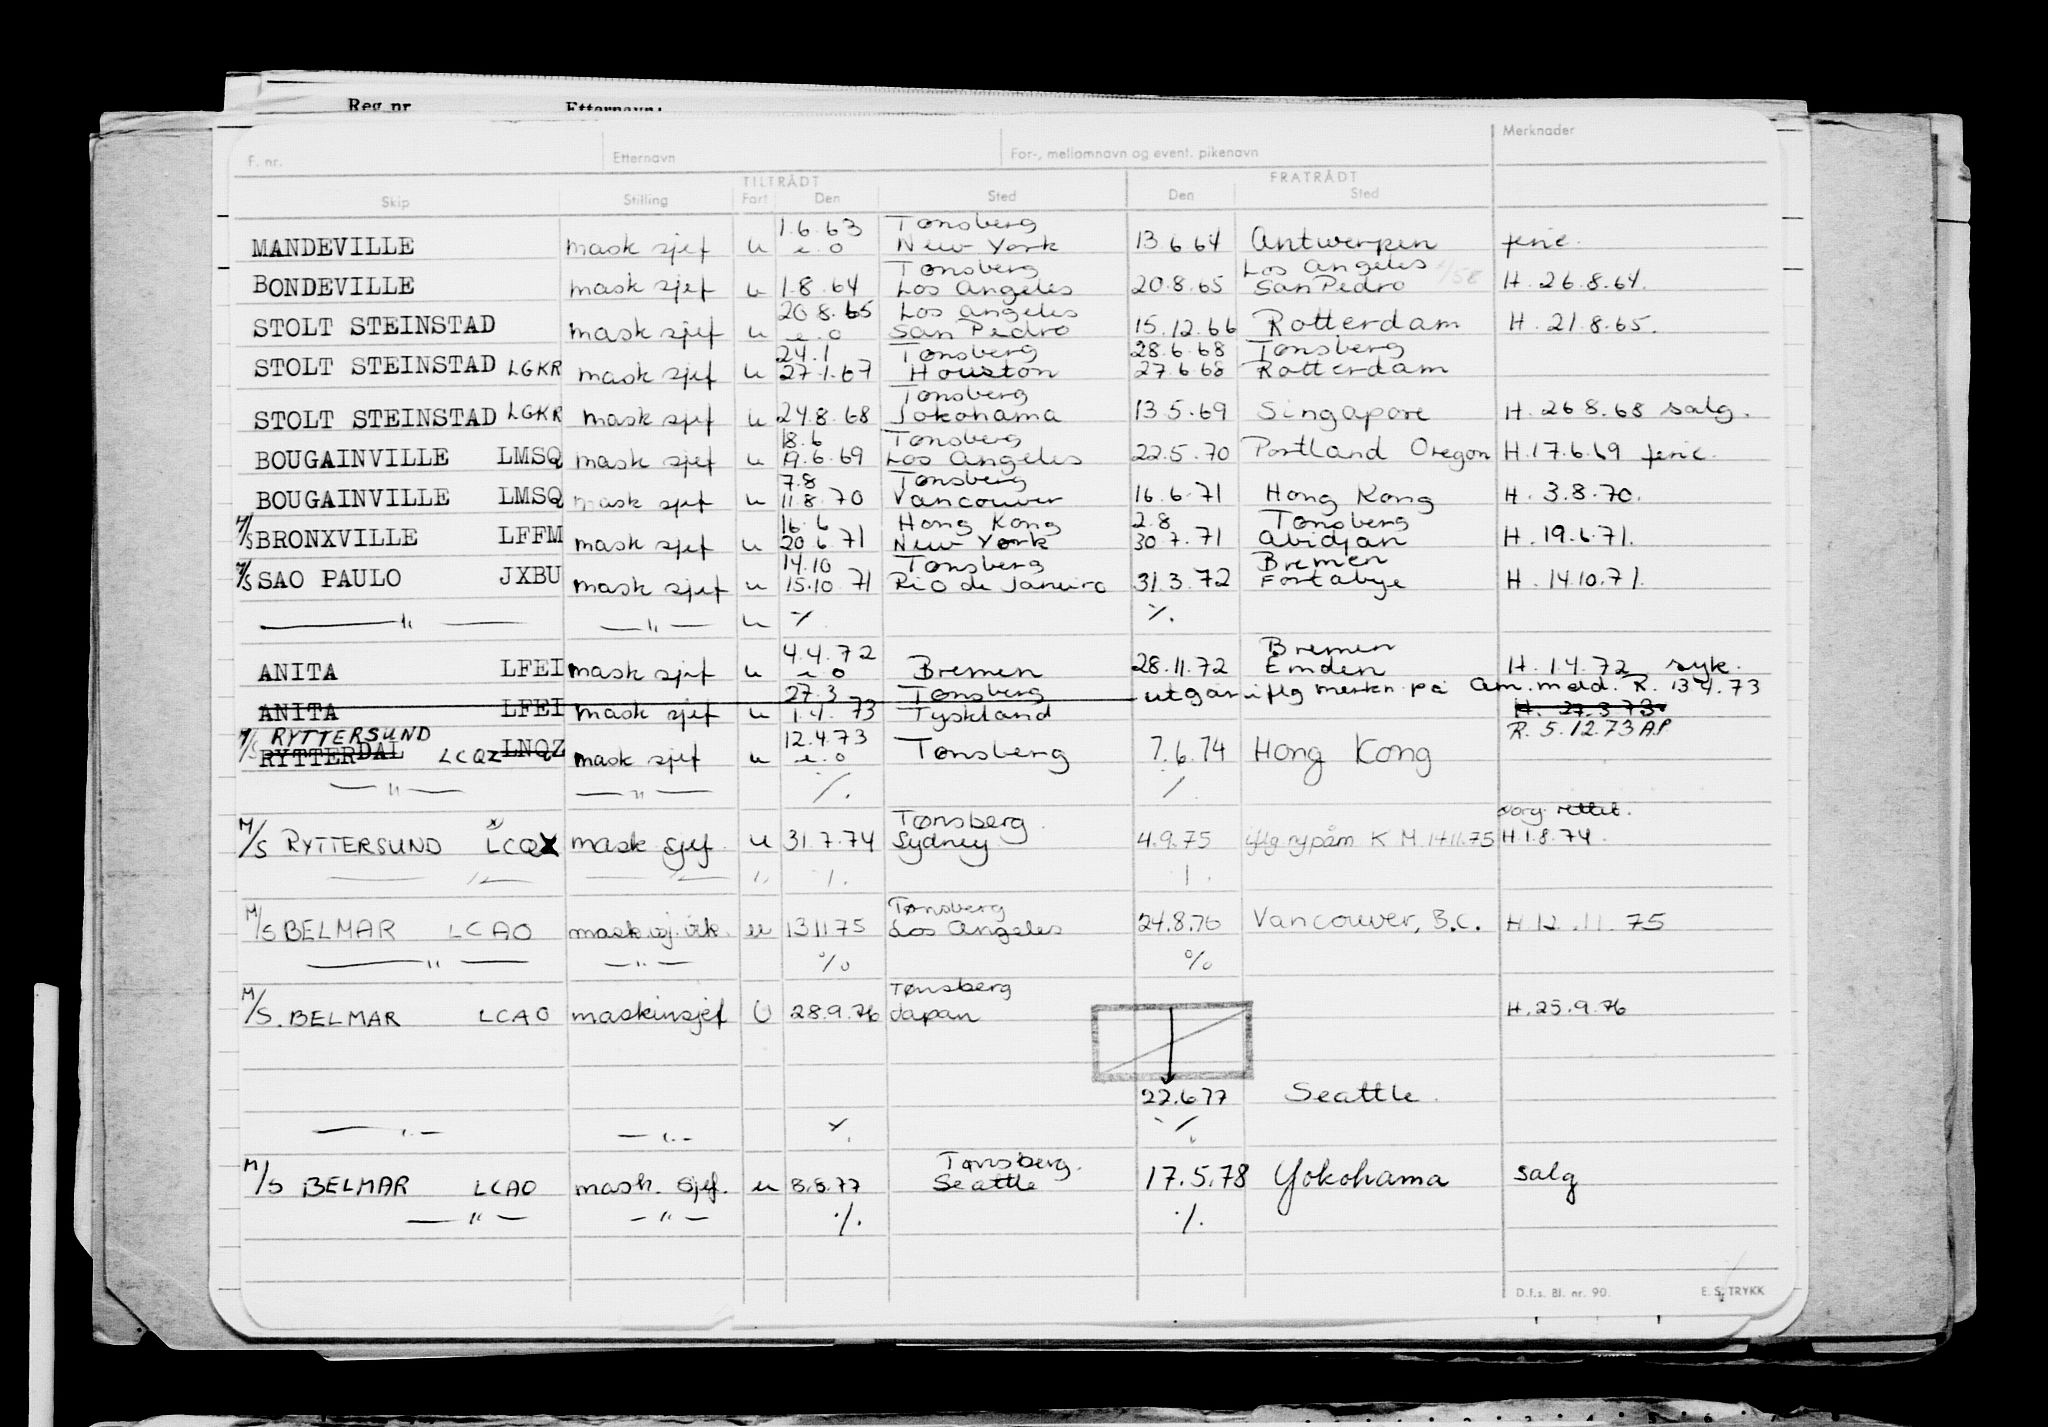 Reg. nr. Etternavn:
F. nr. Etternavn For-, mellomnavn og event. pikenavn Merknader
TILTRÅDT FRATRÅDT
Skip Stilling Fart Den Sted Den Sted
1.6.63 Tønsberg
MANDEVILLE mask sjef u e.o New York 13.6.64 Antwerpen ferie.
Tønsberg Los Angeles
BONDEVILLE mask sjef u 1.8.64 Los Angeles 20.8.65 San Pedro H. 26.8.64.
20.8.65 Los Angeles
STOLT STEINSTAD mask sjef u e.o San Pedro 15.12.66 Rotterdam H. 21.8.65.
24.1 Tønsberg 28.6.68 Tønsberg
STOLT STEINSTAD LGKR mask sjef u 27.1.67 Houston 27.6.68 Rotterdam
Tønsberg
STOLT STEINSTAD LGKR mask sjef u 24.8.68 Jokohama 13.5.69 Singapore H. 26.8.68 salg.
18.6 Tønsberg
BOUGAINVILLE LMSQ mask sjef u 19.6.69 Los Angeles 22.5.70 Portland Oregon H.17.6.69 ferie.
7.8 Tønsberg
BOUGAINVILLE LMSQ mask sjef u 11.8.70 Vancouver 16.6.71 Hong Kong H. 3.8.70.
16.6 Hong Kong 2.8 Tønsberg
M/S BRONXVILLE LFFM mask sjef u 20.6.71 New York 30.7.71 Abidjan H. 19.6.71.
14.10 Tønsberg Bremen
M/S SAO PAULO JXBU mask sjef u 15.10.71 Rio de Janeiro 31.3.72 Fortabye H. 14.10.71.
— " — — " — u % %
4.4.72 Bremen
ANITA LFEI mask sjef u e.o Bremen 28.11.72 Emden H. 1.4.72 syk.
27.3 Tønsberg utgår iflg merkn. på Am. meld. R. 13.4.73
ANITA LFEI mask sjef u 1.4.73 Tyskland H. 27.3.73.
M/S RYTTERSUND 12.4.73 R. 5.12.73 AP.
RYTTERDAL LCQZ LNQZ mask sjef u e.o Tønsberg 7.6.74 Hong Kong
— " — — " — % %
Tønsberg rettet.
M/S RYTTERSUND LCQX mask sjef. u 31.7.74 Sydney 4.9.75 iflg ny påm K M 14.11.75 H.1.8.74.
— " — — " — " % %
Tønsberg
M/S BELMAR LCAO u 13.11.75 Los Angeles 24.8.76 Vancouver, B.C. H.12.11.75
— " — — " — % %
Tønsberg
M/S. BELMAR LCAO maskinsjef U 28.9.76 Japan H.25.9.76
22.6.77 Seattle.
— " — — " — % %
Tønsberg.
M/S BELMAR LCAO mask. sjef. u 8.8.77 Seattle 17.5.78 Yokohama salg
— " — — " — % %
D.f.s. Bl. nr. 90. E. S. TRYKK